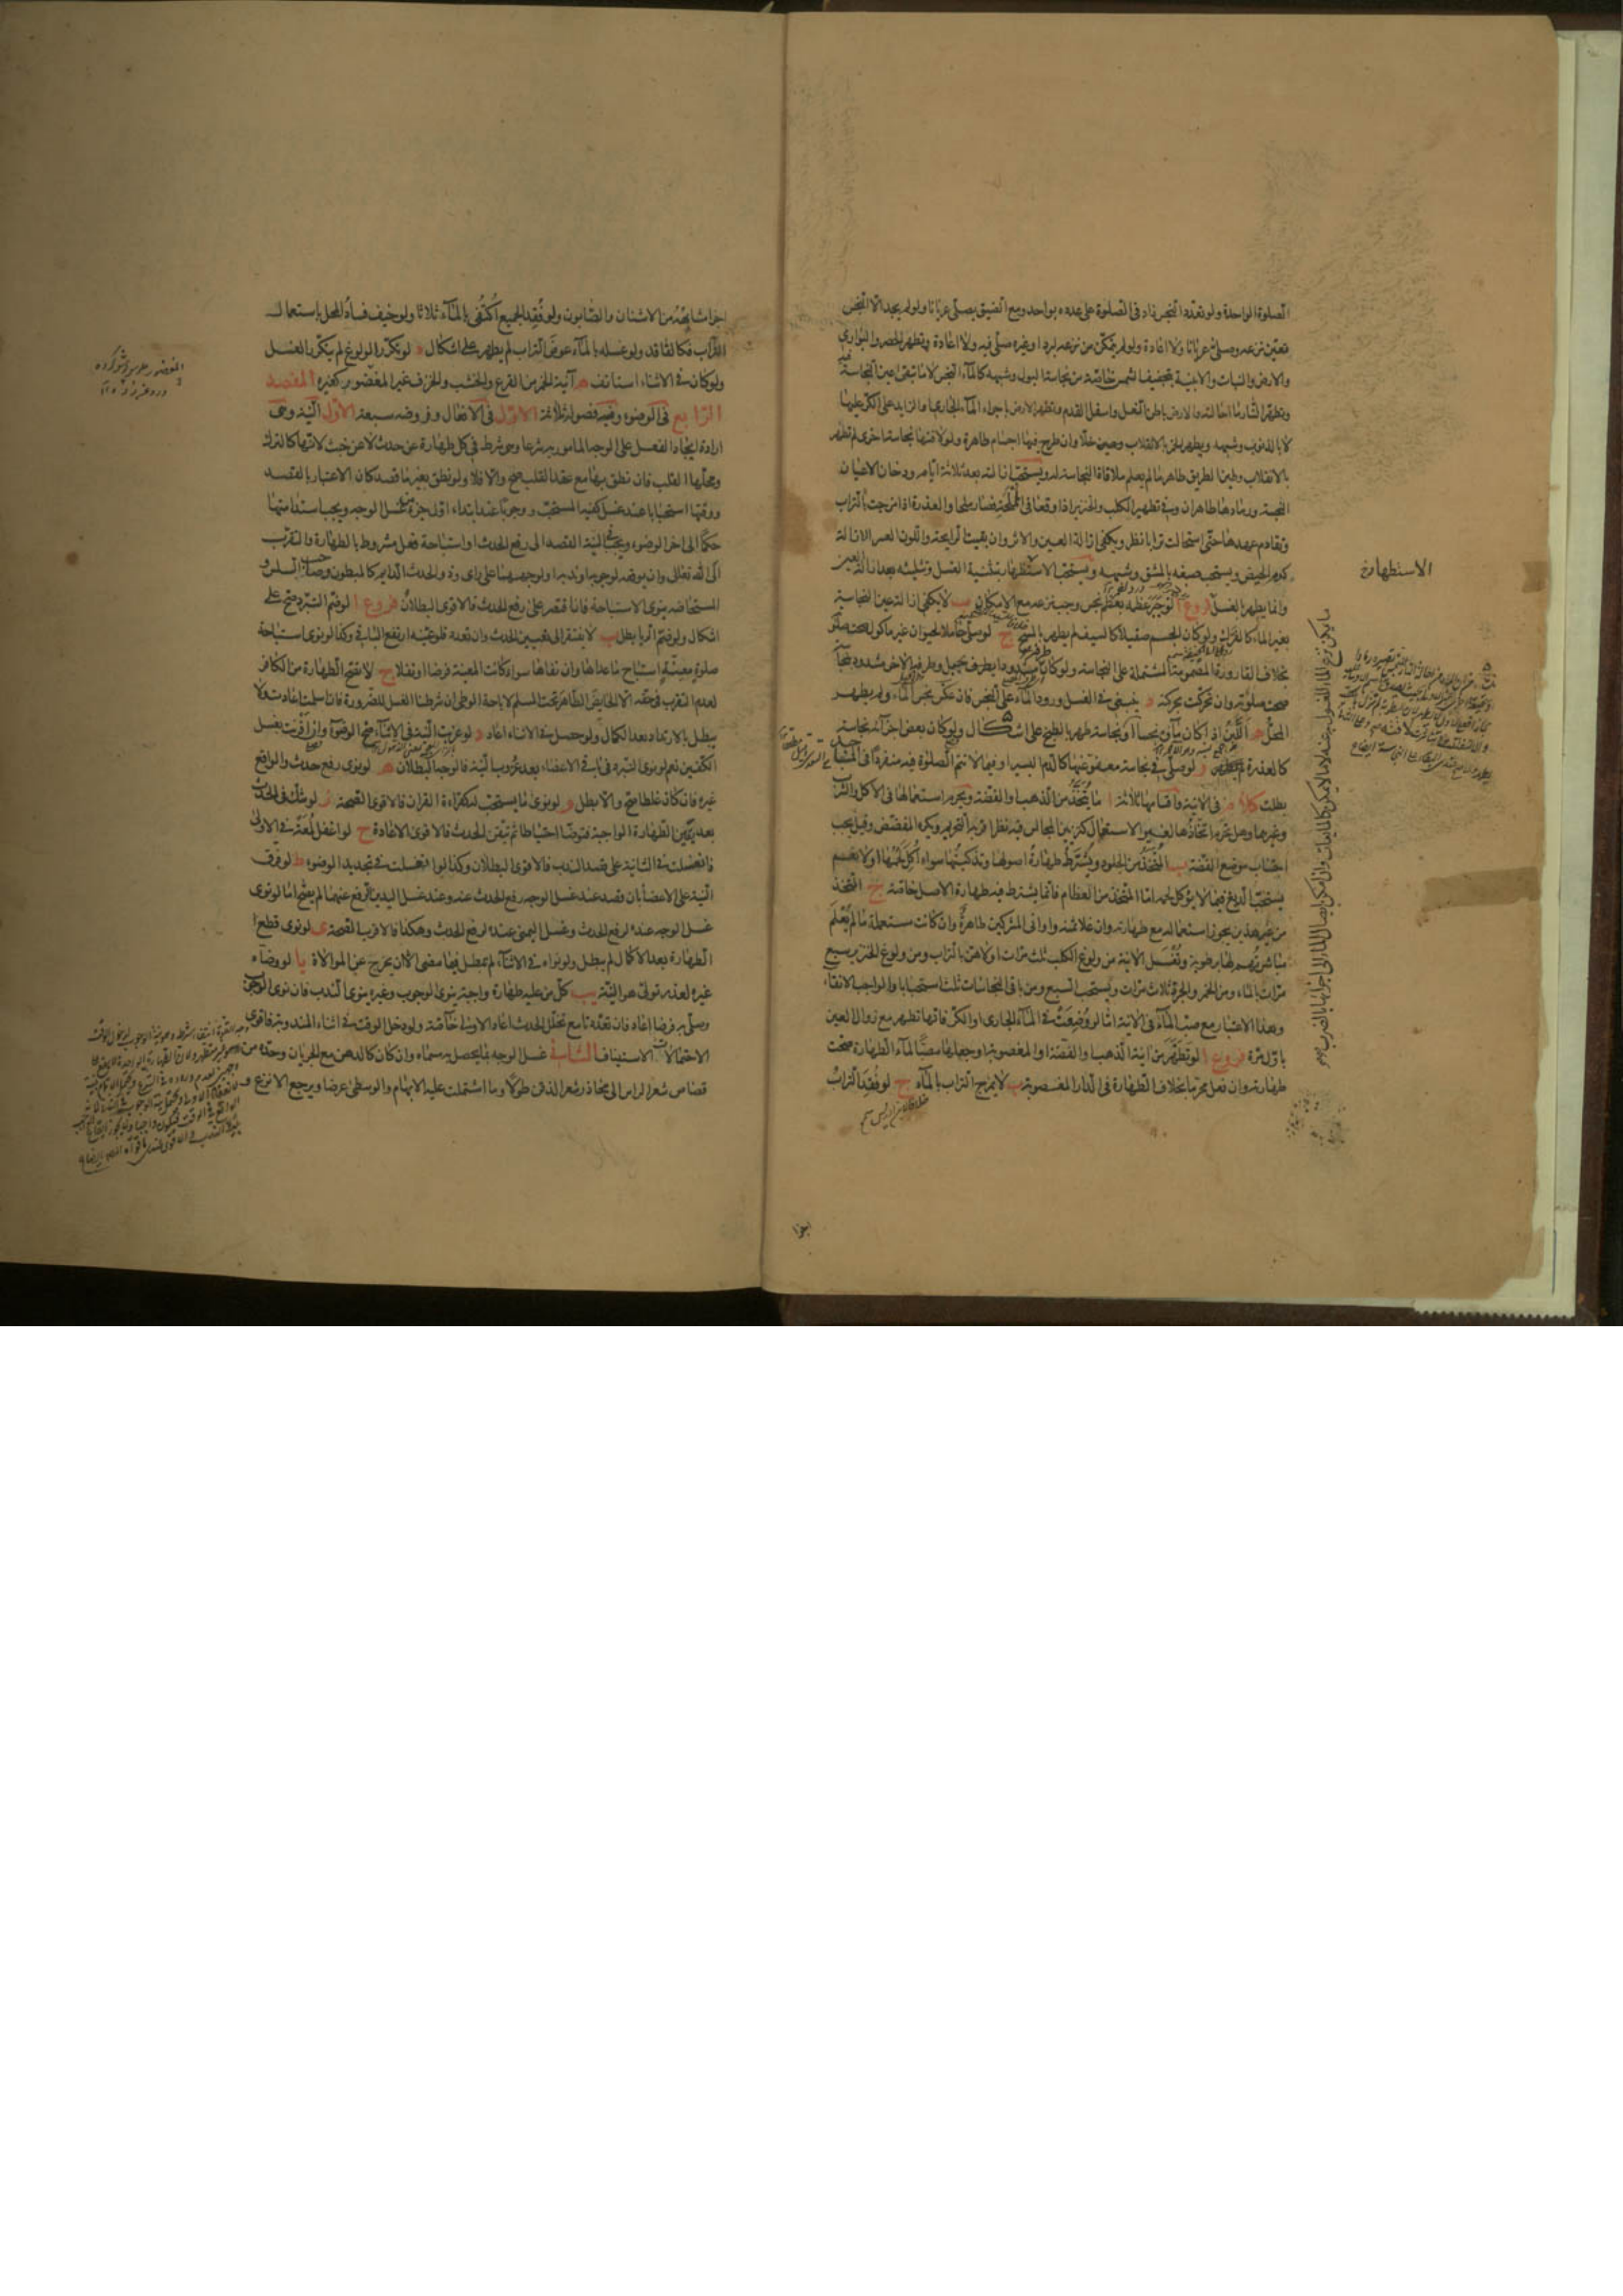 الصلوة الواحدة ولو تعدد النجس زاد فى الصلوة على عدده بواحد ومع الضيق يصلى عريانا ولو لم يجد الا النجس
تعين نزعه وصلى عريانا ولا اعادة ولو لم يتمكن من نزعه لبرد او غيره صلى فيه ولا اعادة وتطهر الحصر والبوارى
والارض والنبات والابنية بتجفيف الشمس خاصة من نجاسة البول وشبهه كالماء النجس لا ما تبقى عين النجاسة فيه
وتطهر النار ما احالته والارض باطن النعل واسفل القدم وتطهر الارض باجراء الماء الجارى او الزايد على الكر عليها
لا بالذنوب وشبهه ويطهر الخمر بالانقلاب وحين خلا وان طرح فيها اجسام طاهرة ولو لاقتها نجاسة اخرى لم تطهر
بالانقلاب وطين الطريق طاهر ما لم يعلم ملاقاة النجاسة له ويستحب ازالته بعد ثلاثة ايام ودخان الاعيان
النجسة ورمادها طاهران وفى تطهير الكلب والخنزير اذا وقعا فى المملحة فصارا ملحا والعذرة اذا امتزجت بالتراب
وتقادم عهدها حتى استحالت ترابا نظر ويكفى ازالة العين والاثر وان بقيت الرايحة واللون العسر الازالة
كدم الحيض ويستحب صبغه بالمشق وشبهه ويستحب الاستظهار بتثنية الغسل وتثليثه بعد ازالة العين
وانما يطهر بالغسل فروع ا لو جبر عظمه بعظم نجس وجب نزعه مع الامكان ب لا يكفى ازالة عين النجاسة
بغير الماء كالفرك ولو كان الجسم صقيلا كالسيف لم يطهر بالمسح ج لو صلى حاملا لحيوان غير ماكول صحت صلوته
بخلاف القارورة المضمومة المشتملة على النجاسة ولو كان وسطه مشدودا بطرف حبل وطرفه الاخر مشدود بنجاسة
صحت صلوته وان تحركت بحركته د ينبغى فى الغسل ورود الماء على النجس فان عكس نجس الماء ولم يطهر
المحل ه اللبن اذا كان ماؤه نجسا او نجاسة طهر بالطبخ على اشكال ولو كان بعض اجزائه نجاسة
كالعذرة لم يطهر و لو صلى فى نجاسة معفو عنها كالدم اليسير او فيما لا تتم الصلوة فيه منفردا فى المساجد
بطلت كلام فى الانية واقسامها ثلاثة ا ما يتخذ من الذهب او الفضة ويحرم استعمالها فى الاكل والشرب
وغيرهما وهل يحرم اتخاذها لغير الاستعمال كتزيين المجالس فيه نظر اقربه التحريم ويكره المفضض وقيل يجب
اجتناب موضع الفضة ب المتخذ من الجلود ويشترط طهارة اصولها وتذكيتها سواء اكل لحمها اولا نعم
يستحب الدبغ فيما لا يؤكل لحمه اما المتخذ من العظام فانما يشترط فيه طهارة الاصل خاصة ج المتخذ
من غير هذين يجوز استعماله مع طهارته وان غلا ثمنه واوانى المشركين طاهرة وان كانت مستعملة ما لم يعلم
مباشرتهم لها برطوبة وتغسل الانية من ولوغ الكلب ثلث مرات اولاهن بالتراب ومن ولوغ الخنزير سبع
مرات بالماء ومن الخمر والجرذ ثلاث مرات ويستحب السبع ومن باقى النجاسات ثلثا استحبابا والواجب الانقاء
وهذا الاعتبار مع صب الماء فى الانية اما لو وضعت فى الماء الجارى او الكر فانها تطهر مع زوال العين
باول مرة فروع ا لو تطهر من انية الذهب او الفضة او المغصوبة او جعلها مصبا لماء الطهارة صحت
طهارته وان فعل محرما بخلاف الطهارة فى الدار المغصوبة ب لا يمزج التراب بالماء ج لو فقد التراب
الاستظهار
اجزا
اجزا مشابهه من الاشنان والصابون ولو فقد الجميع اكتفى بالماء ثلاثا ولو خيف فساد المحل باستعمال
التراب فكالفاقد ولو غسله بالماء عوض التراب لم يطهر على اشكال د لو تكرر الولوغ لم يتكرر الغسل
ولو كان فى الاثناء استانف ه آنية الخمر من القرع والخشب والخزف غير المغضور كغيره المقصد
الرابع فى الوضوء وفيه فصول ثلاثة الاول فى الافعال وفروضه سبعة الاول النية وهى
ارادة ايجاد الفعل على الوجه المامور به شرعا وهى شرط فى كل طهارة عن حدث لا عن خبث لانها كالترك
ومحلها القلب فان نطق بها مع عقد القلب صح والا فلا ولو نطق بغير ما قصد كان الاعتبار بالقصد
ووقتها استحبابا عند غسل كفيه المستحب ووجوبا عند ابتداء اول جزء من غسل الوجه ويجب استدامتها
حكما الى اخر الوضوء ويجب فى النية القصد الى رفع الحدث او استباحة فعل مشروط بالطهارة والتقرب
الى الله تعالى وان يوقعه لوجوبه او ندبه او لوجههما على راى وذو الحدث الدايم كالمبطون وصاحب السلس و
المستحاضة ينوى الاستباحة فان اقتصر على رفع الحدث فالاقوى البطلان فروع ا لو ضم التبرد صح على
اشكال ولو ضم الريا بطل ب لا يفتقر الى تعيين الحدث وان تعدد فلو عينه ارتفع الباقى وكذا لو نوى استباحة
صلوة معينة استباح ما عداها وان نفاها سواء كانت المعينة فرضا او نفلا ج لا تصح الطهارة من الكافر
لعدم التقرب فى حقه الا الحايض الطاهر تحت المسلم لاباحة الوطى ان شرطنا الغسل للضرورة فان اسلمت اعادت ولا
يبطل بالارتداد بعد الكمال ولو حصل فى الاثناء اعاد د لو عزبت النية فى الاثناء صح الوضوء وان اقترنت بغسل
الكفين نعم لو نوى التبرد فى باقى الاعضاء بعد عزوب النية فالوجه البطلان ه لو نوى رفع حدث والواقع
غيره فان كان غلطا صح والا بطل و لو نوى ما يستحب له كقراءة القران فالاقوى الصحة ز لو شك فى الحدث
بعد تيقن الطهارة الواجبة فتوضا احتياطا ثم تيقن الحدث فالاقوى الاعادة ح لو اغفل لمعة فى الاولى
فانغسلت فى الثانية على قصد الندب فالاقوى البطلان وكذا لو انغسلت فى تجديد الوضوء ط لو فرق
النية على الاعضاء بان قصد عند غسل الوجه رفع الحدث عنه وعند غسل اليدين الرفع عنهما لم يصح اما لو نوى
غسل الوجه عنده لرفع الحدث وغسل اليمنى عنده لرفع الحدث وهكذا فالاقرب الصحة ى لو نوى قطع
الطهارة بعد الاكمال لم يبطل ولو نواه فى الاثناء لم يبطل فيما مضى الا ان يخرج عن الموالاة يا لو وضاه
غيره لعذر تولى هو النية يب كل من عليه طهارة واجبة ينوى الوجوب وغيره ينوى الندب فان نوى الوجوب
وصلى به فرضا اعاد فان تعددتا مع تخلل الحدث اعاد الاولى خاصة ولو دخل الوقت فى اثناء المندوبة فاقوى
الاحتمالات الاستيناف الثانى غسل الوجه بما يحصل به مسماه وان كان كالدهن مع الجريان وحده من
قصاص شعر الراس الى محاذر شعر الذقن طولا وما اشتملت عليه الابهام والوسطى عرضا ويرجع الانزع و